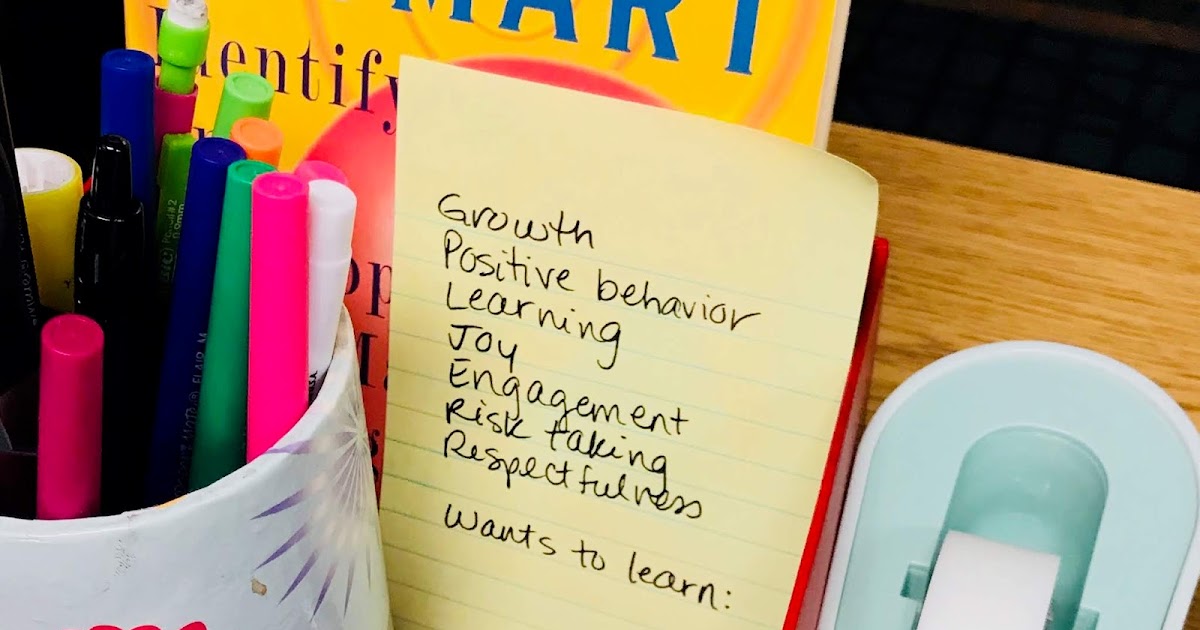 MART
Identify
Growth
Positive behavior
Learning
Joy
Engagement
Risk taking
Respectfulness
Wants to learn: